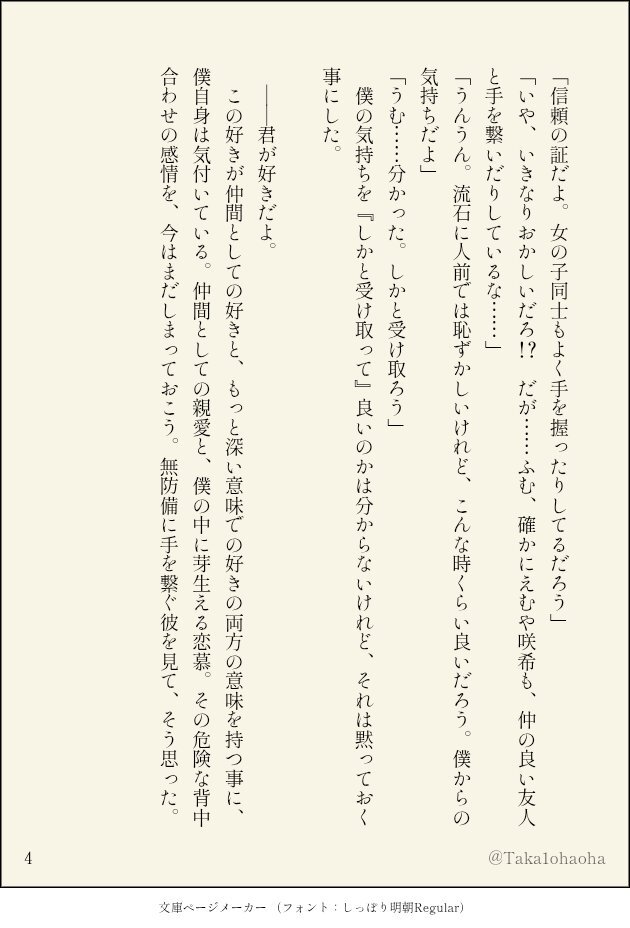 「信頼の証だよ。女の子同士もよく手を握ったりしてるだろう」
「いや、いきなりおかしいだろ!?　だが……ふむ、確かにえむや咲希も、仲の良い友人
と手を繋いだりしているな……」
「うんうん。流石に人前では恥ずかしいけれど、こんな時くらい良いだろう。僕からの
気持ちだよ」
「うむ……分かった。しかと受け取ろう」
　僕の気持ちを『しかと受け取って』良いのかは分からないけれど、それは黙っておく
事にした。
　――君が好きだよ。
　この好きが仲間としての好きと、もっと深い意味での好きの両方の意味を持つ事に、
僕自身は気付いている。仲間としての親愛と、僕の中に芽生える恋慕。その危険な背中
合わせの感情を、今はまだしまっておこう。無防備に手を繋ぐ彼を見て、そう思った。
4
@Taka1ohaoha
文庫ページメーカー（フォント：しっぽり明朝Regular）